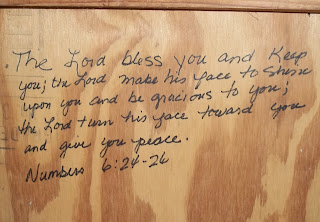 The Lord bless you and Keep
you; the Lord make his face to shine
upon you and be gracious to you;
the Lord turn his face toward you
and give you peace.
Numbers 6:24-26